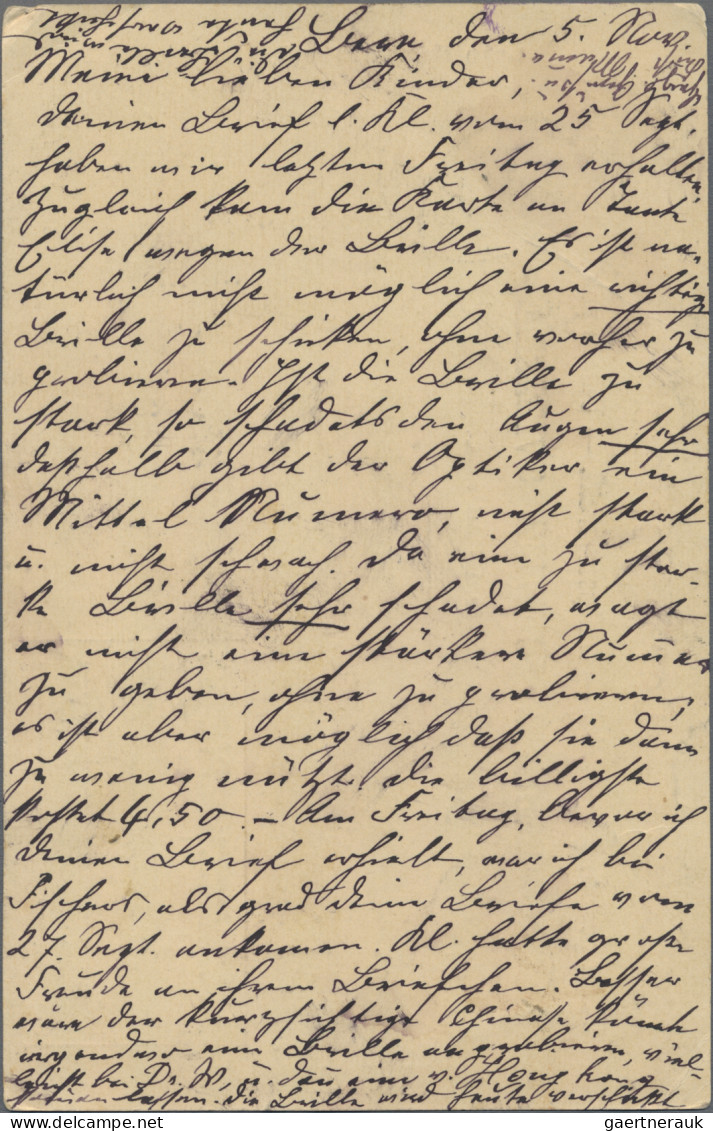 Bern, den 5. Nov.
Meine lieben Kinder,
Deinen Brief l. Kl. vom 25 Sept.
haben wir letzten Freitag erhalten,
zugleich kam die Karte an Tante
Elise wegen der Brille. Es ist na-
türlich nicht möglich eine richtige
Brille zu schicken, ohne vorher zu
probieren. Ist die Brille zu
stark, so schadets den Augen sehr
deßhalb gibt der Optiker ein
Mittel Numero, nicht stark
u. nicht schwach. Da eine zu star-
ke Brille sehr schadet, wagt
er nicht eine stärkere Nummer
zu geben, ohne zu probieren,
es ist aber möglich daß sie dann
zu wenig nützt. die billigste
kostet 4,50. – Am Freitag, bevor ich
deinen Brief erhielt, war ich bei
Fischers, als grad deine Briefe vom
27. Sept. ankamen. Kl. hatte große
Freude an ihrem Briefchen. Besser
wäre der kurzsichtige Chinese könnte
irgendwo eine Brille anprobieren, viel-
leicht bei Dr. W, u. dann eine v. Hongkong
kommen lassen. die Brille wird heute verschickt
gaertnerauk